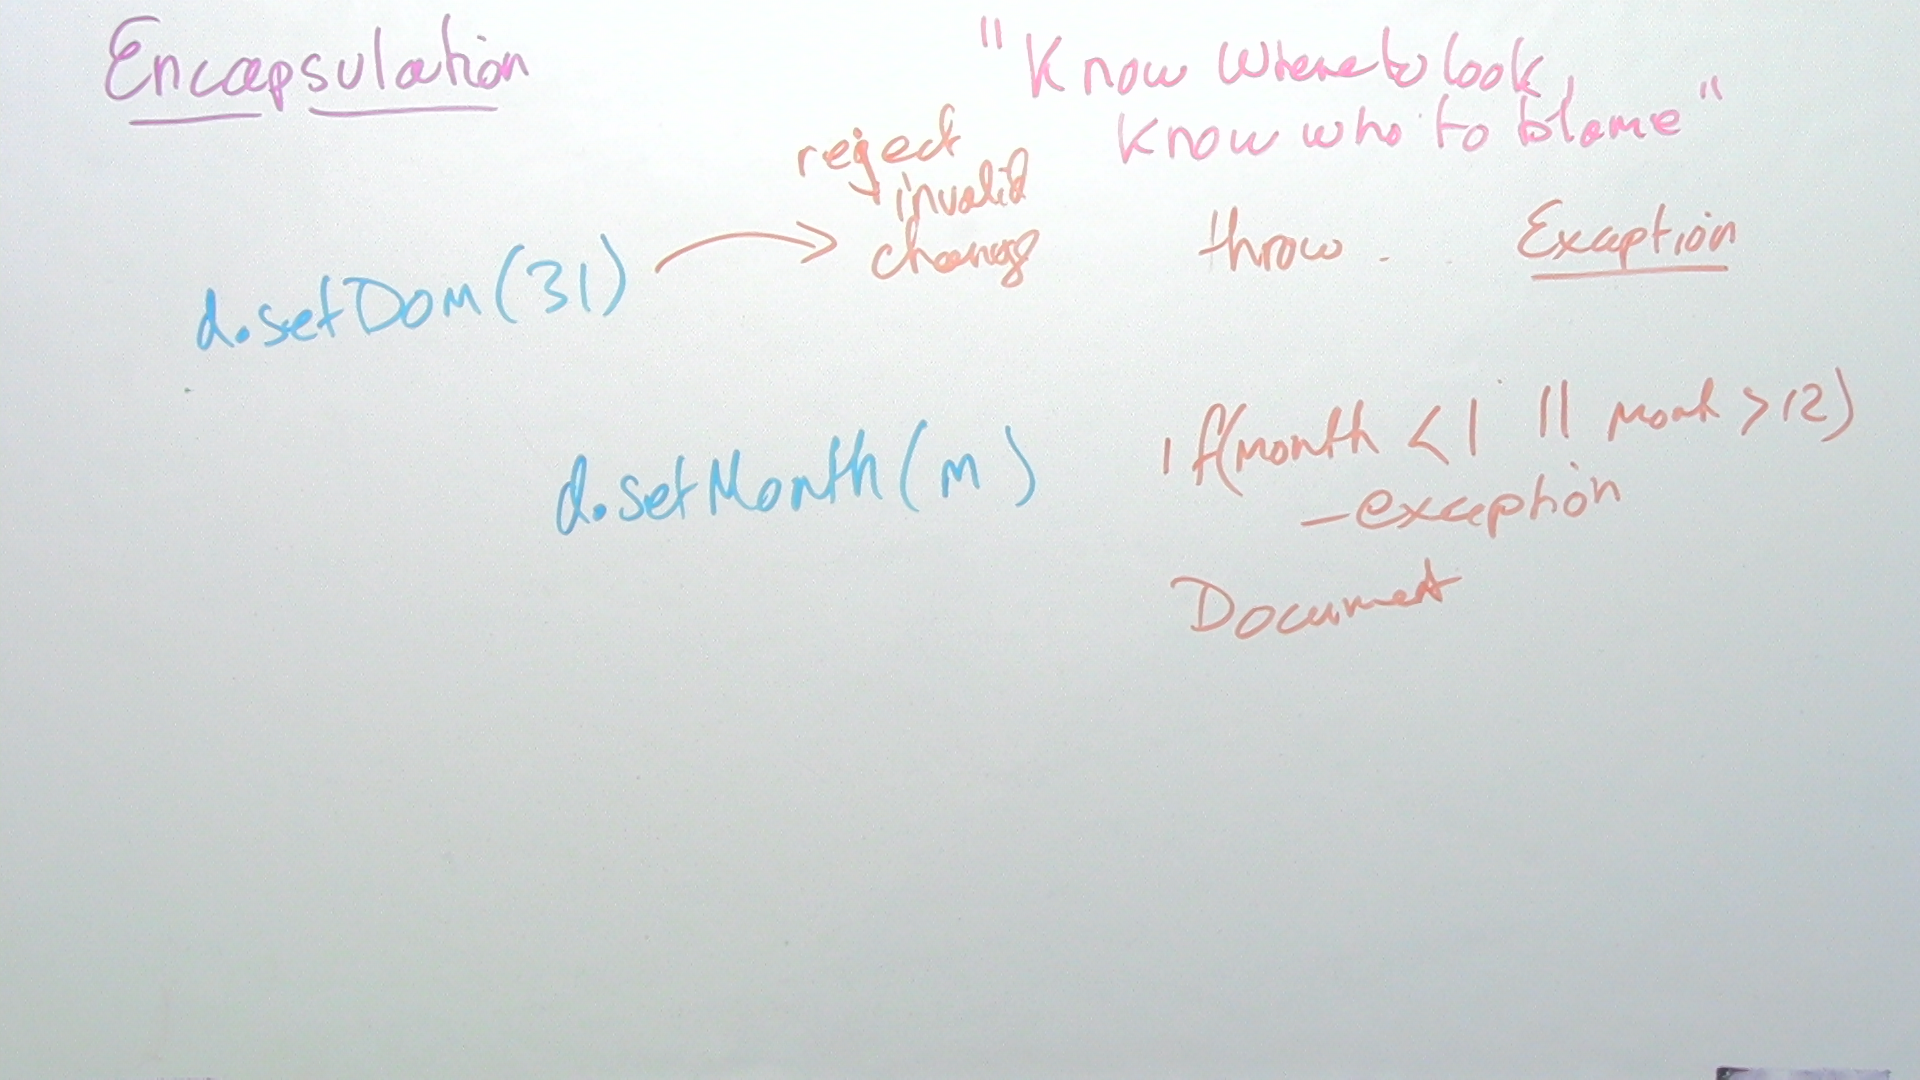 Encapsulation
"Know where to look,
know who to blame"
reject
invalid
change
throw Exception
d.setDom(31)
if(month < 1 || month > 12)
- exception
d.setMonth(m)
Document